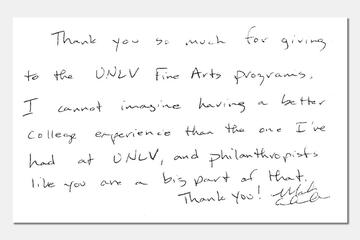 Thank you so much for giving
to the UNLV Fine Arts programs.
I cannot imagine having a better
college experience than the one I've
had at UNLV, and philanthropists
like you are a big part of that.
Thank you!